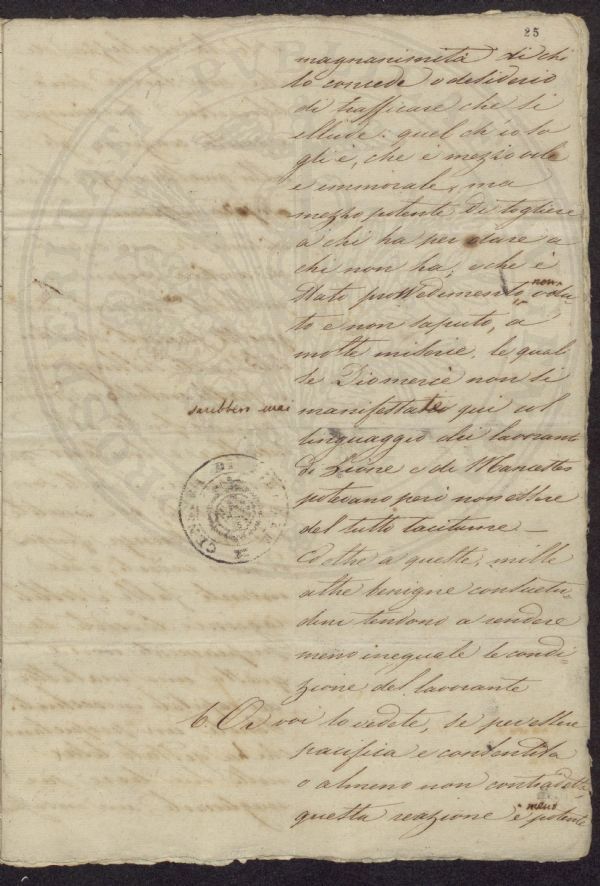 25
magnanimità di chi
lo concede o desiderio
di trafficare che si
illude: quel ch'io so
gli è, che è mezzo vile
e immorale, ma
mezzo potente di togliere
a chi ha per dare a
chi non ha, e che è
stato provvedimento, non
to e non saputo, a
molte miserie, le qual
se
non si
sarebbero mai
manifestate qui col
linguaggio dei lavoranti
di Lione e di Manchester
potevano però non essere
del tutto taciturne —
Ed oltre a queste, mille
altre benigne consuetu-
dini tendono a rendere
meno ineguale le condi-
zione del lavorante
6. Or voi lo vedete, se per essere
pacifica e consentita
o almeno non contradetta,
questa reazione è meno potente